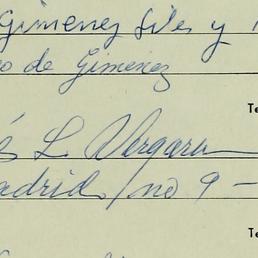 Gimenez Giles y
o de Gimenez
Te
és L. Vergara
adrid, no 9 -
Te